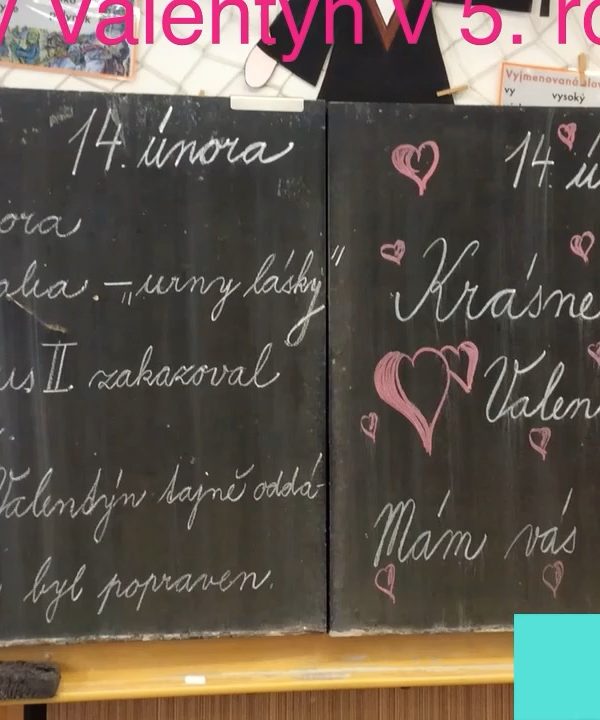 Valentýn v 5. ro
Vyjmenovaná slov
vy
vysoký
14. února
ora
alia. – „urny lásky"
us II. zakazoval
Valentýn tajně oddá-
byl popraven.
14. ú
Krásné
Valen
Mám vás